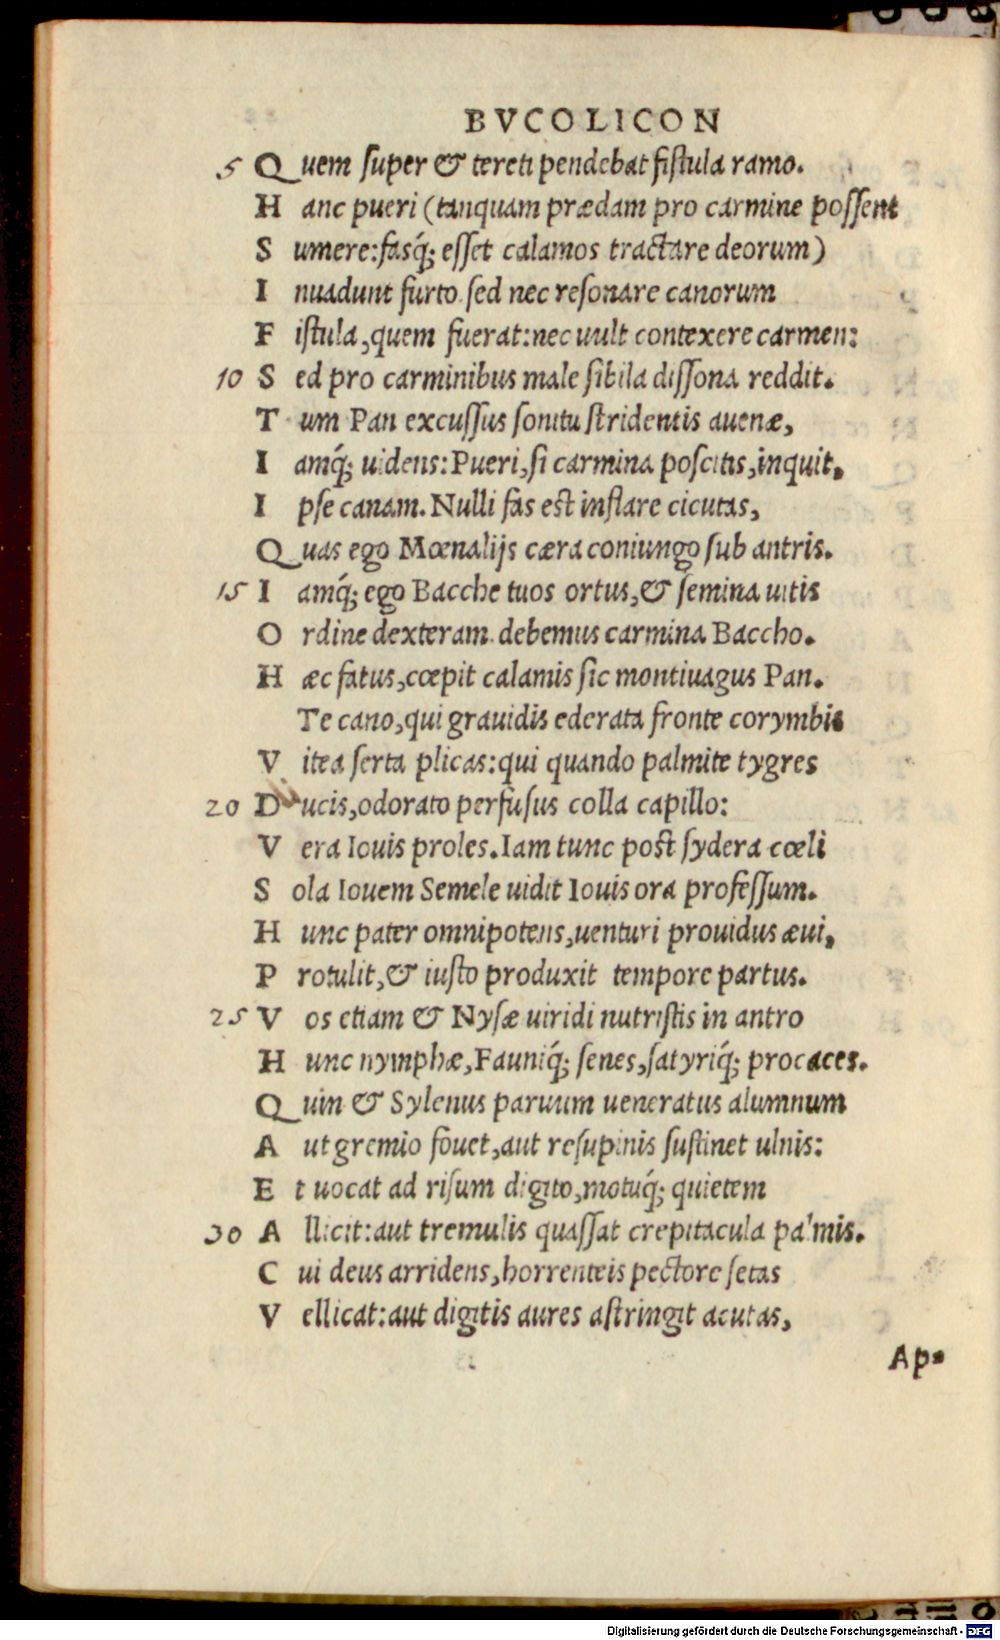 BVCOLICON
5 Quem super & tereti pendebat fistula ramo.
Hanc pueri (tanquam prædam pro carmine possent
Sumere: fasq́; esset calamos tractare deorum)
Inuadunt furto. sed nec resonare canorum
Fistula, quem fuerat: nec uult contexere carmen:
10 Sed pro carminibus male sibila dissona reddit.
Tum Pan excussus sonitu stridentis auenæ,
Iamq́; uidens: Pueri, si carmina poscitis, inquit,
Ipse canam. Nulli fas est inflare cicutas,
Quas ego Mœnalijs cæra coniungo sub antris.
15 Iamq́; ego Bacche tuos ortus, & semina uitis
Ordine dexteram. debemus carmina Baccho.
Hæc fatus, cœpit calamis sic montiuagus Pan.
Te cano, qui grauidis ederata fronte corymbis
Vitea serta plicas: qui quando palmite tygres
20 Ducis, odorato perfusus colla capillo:
Vera Iouis proles. Iam tunc post sydera cœli
Sola Iouem Semele uidit Iouis ora professum.
Hunc pater omnipotens, uenturi prouidus æui,
Protulit, & iusto produxit tempore partus.
25 Vos etiam & Nysæ uiridi nutristis in antro
Hunc nymphæ, Fauniq́; senes, satyriq́; procaces.
Quin & Sylenus paruum ueneratus alumnum
Aut gremio fouet, aut resupinis sustinet ulnis:
Et uocat ad risum digito, motuq́; quietem
30 Allicit: aut tremulis quassat crepitacula palmis.
Cui deus arridens, horrenteis pectore setas
Vellicat: aut digitis aures astringit acutas,
Ap-
Digitalisierung gefördert durch die Deutsche Forschungsgemeinschaft - DFG